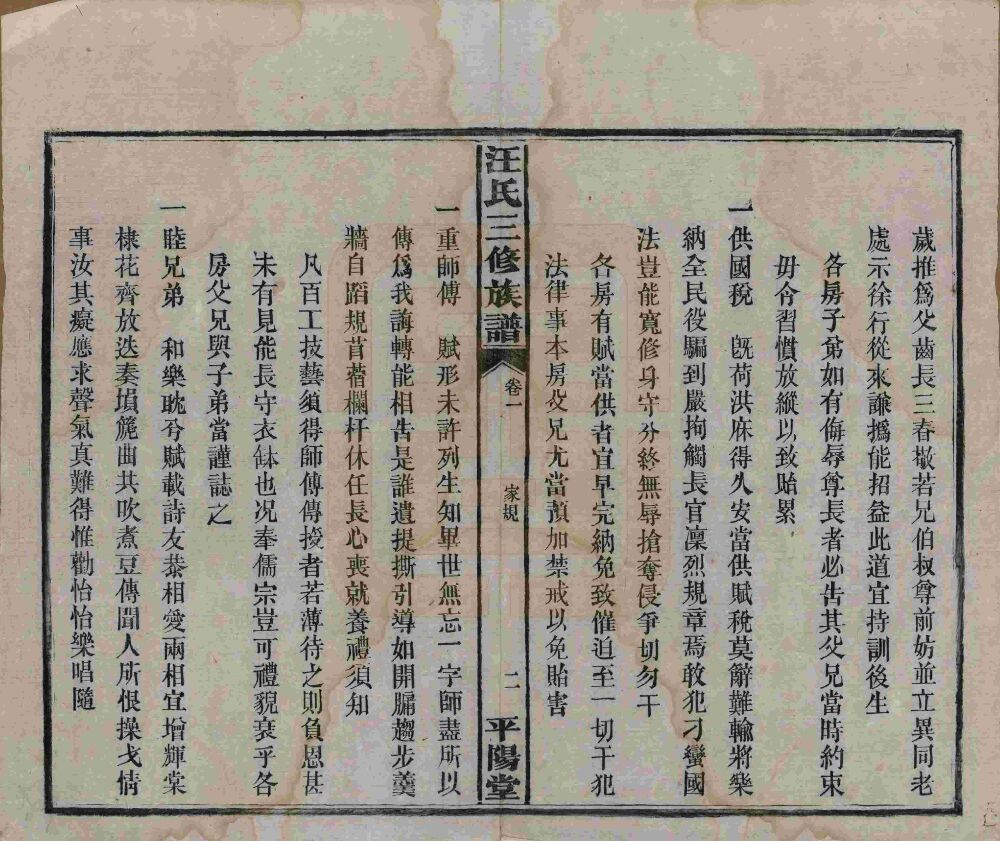 歲推爲父齒長三春敬若兄伯叔尊前妨並立異同老
處示徐行從來謙撝能招益此道宜持訓後生
各房子弟如有侮辱尊長者必告其父兄當時約束
毋令習慣放縱以致貽累
一供國稅　旣荷洪庥得久安當供賦稅莫辭難輸將樂
納全民役騙到嚴拘觸長官凜烈規章焉敢犯刁蠻國
法豈能寬修身守分終無辱搶奪侵爭切勿干
各房有賦當供者宜早完納免致催迫至一切干犯
法律事本房父兄尤當預加禁戒以免貽害
汪氏三修族譜　卷一　家規　二　平陽堂
一重師傅　賦形未許列生知畢世無忘一字師盡所以
傳爲我誨轉能相告是誰遺提撕引導如開牖趨步羹
牆自蹈規苜蓿欄杆休任長心喪就養禮須知
凡百工技藝須得師傅傳授者若薄待之則負恩甚
未有見能長守衣缽也况奉儒宗豈可禮貌衰乎各
房父兄與子弟當謹誌之
一睦兄弟　和樂眈兮賦載詩友恭相愛兩相宜增輝棠
棣花齊放迭奏塤箎曲共吹煮豆傳聞人所恨操戈情
事汝其癡應求聲氣真難得惟勸怡怡樂唱隨